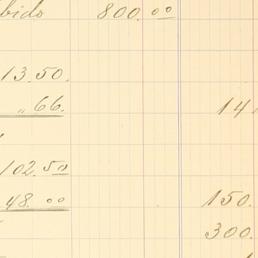 bido 800.00
13.50.
„66.
14
102.50
48.00
150.
300.